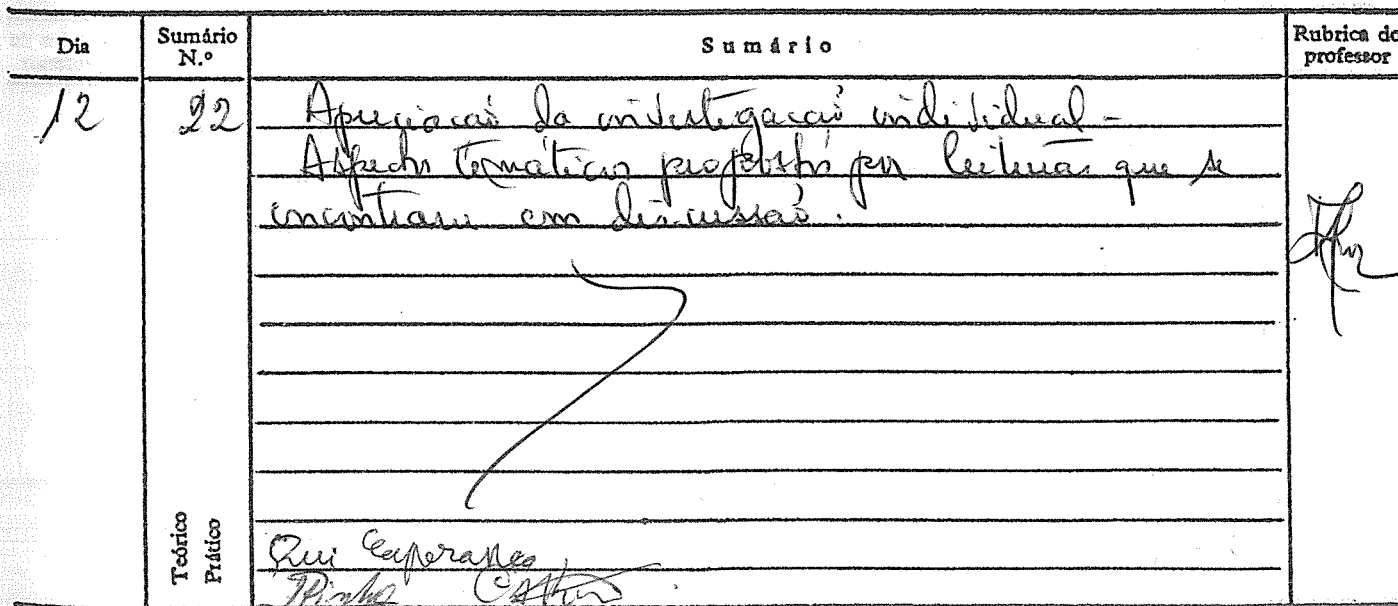 Dia
Sumário N.º
Sumário
Rubrica do professor
12
22
Apreciação da investigação individual -
Aspectos temáticos propostos por leituras que se
encontram em discussão.
Teórico
Prático
Rui Esperança
Pinho